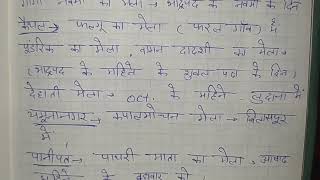 गोगा नवमी का मेला → भाद्रपद के नवमी के दिन
कैथल → फाल्गू का मेला (फरल गाँव) में
पुंडरिक का मेला, वामन द्वादशी का मेला →
(भाद्रपद के महिने के शुक्ल पक्ष के दिन)
देहाती मेला → oct. के महिने लुदाना में
यमुनानगर → कपालमोचन मेला → बिलासपुर
में
पानीपत → पाथरी माता का मेला, आषाढ
महिने के बुधवार को